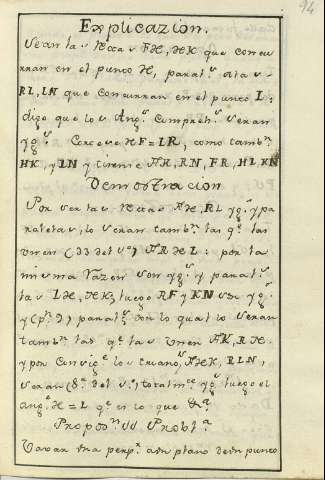 94
Explicazion.
Sean las Rectas FH, HK que concu-
rran en el punto H, paral.s a las
RL, LN que concurran en el punto L:
digo que los Ang.s Compreh.s seran
yg.s HF = LR, como tamb.n
HK, y LN y tirense RN, FR, HL, KN
Demostracion
Por ser las Rectas FH, RL yg.s y pa-
ralelas, lo seran tamb.n las q.e las
unen HL: por la
misma razon son yg.s y paral.s
las LH, KN, luego RF y KN son yg.s
y paral.s por lo qual lo seran
tamb.n las q.e las unen FK, RN.
y por los triang.s FHK, RLN,
seran totalm.te yg.s luego el
ang.o H = L q.e es lo que &.a
Propos.n Probl.a
Tirar una perp.r a un plano de un punto